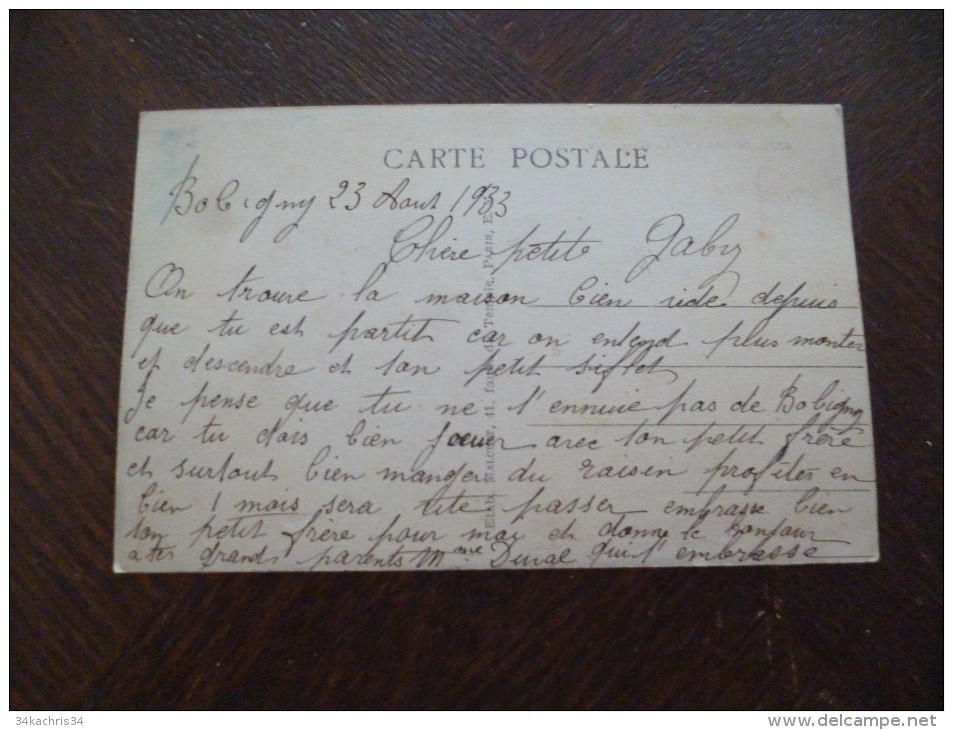 CARTE POSTALE
Bobigny 23 Aout 1933
Chère petite Gaby
On trouve la maison bien vide depuis
que tu est partit car on entend plus monter
et descendre et ton petit siflet
Je pense que tu ne t'ennuie pas de Bobigny
car tu dois bien jouer avec ton petit frère
et surtout bien manger du raisin profites en
bien 1 mois sera vite passer embrasse bien
ton petit frère pour moi et donne le bonjour
a tes grands parents Mme Duval qui t'embrasse
Etab. MALCUIT, 41, faub. du Temple, Paris,
34kachris34
www.delcampe.net